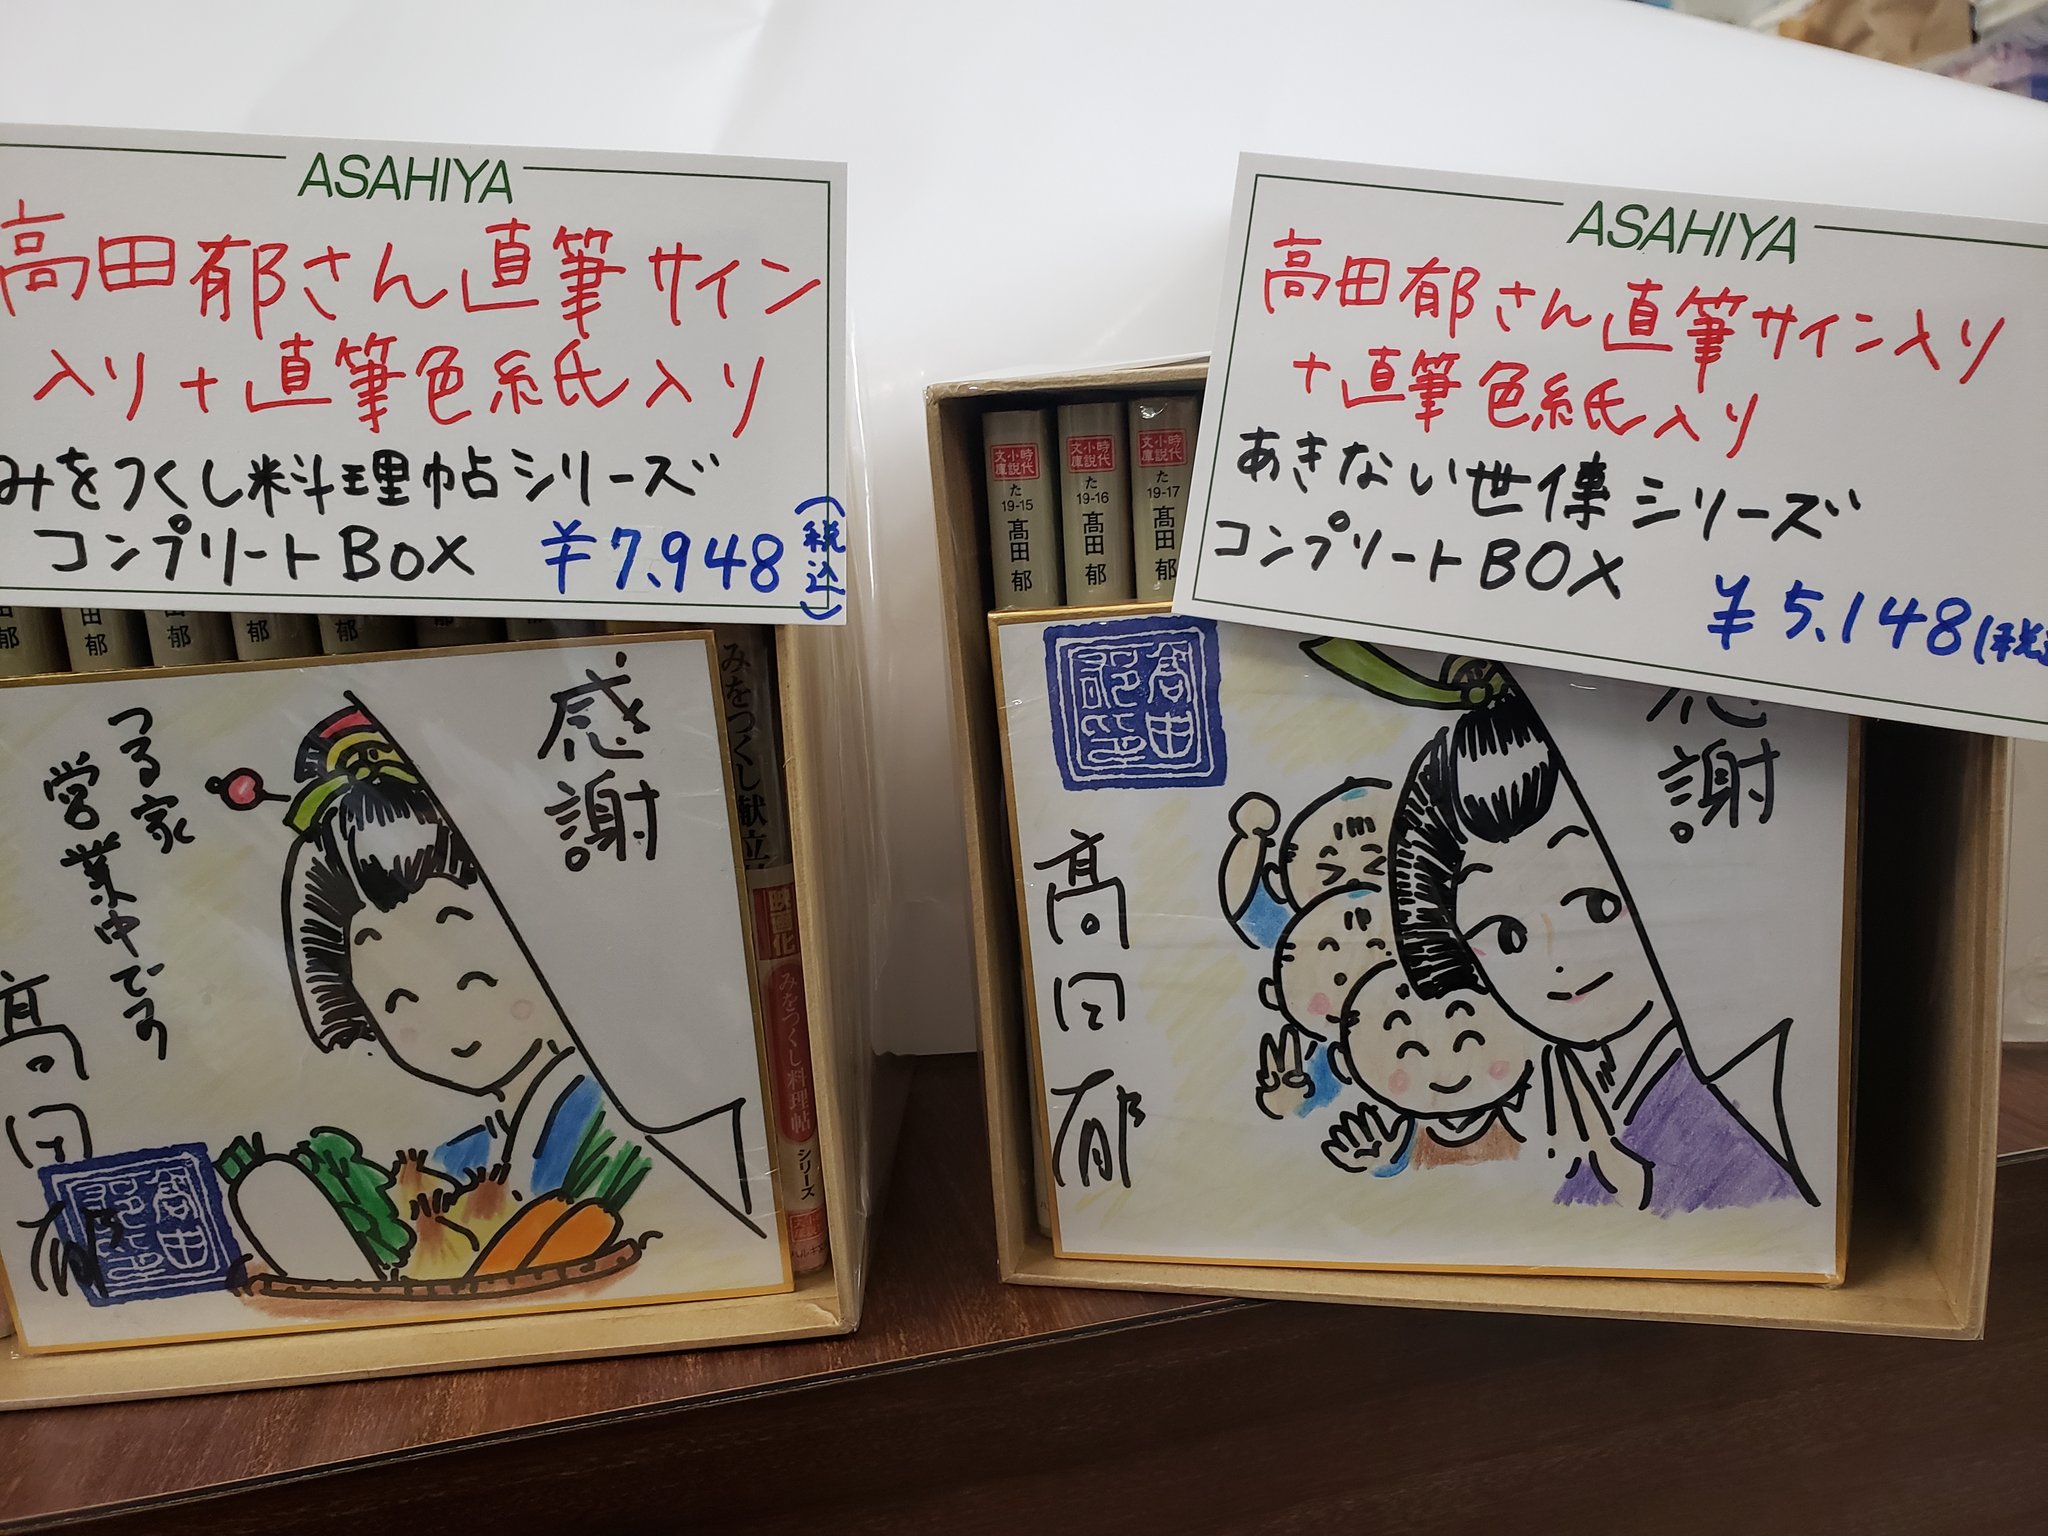 ASAHIYA
高田郁さん直筆サイン
入り+直筆色紙入り
みをつくし料理帖シリーズ
コンプリートBOX ¥7,948(税込)
田 郁
田 郁
田 郁
郁
郁
感謝。
つる家
営業中です
髙田郁
髙田郁印
みをつくし献立
映画化
みをつくし料理帖
シリーズ
ASAHIYA
高田郁さん直筆サイン入り
+直筆色紙入り
あきない世傳シリーズ
コンプリートBOX
¥5,148(税
時代小説文庫
た
19-15
髙田 郁
時代小説文庫
た
19-16
髙田 郁
時代小説文庫
た
19-17
髙田 郁
感謝。
髙田郁印
髙田郁